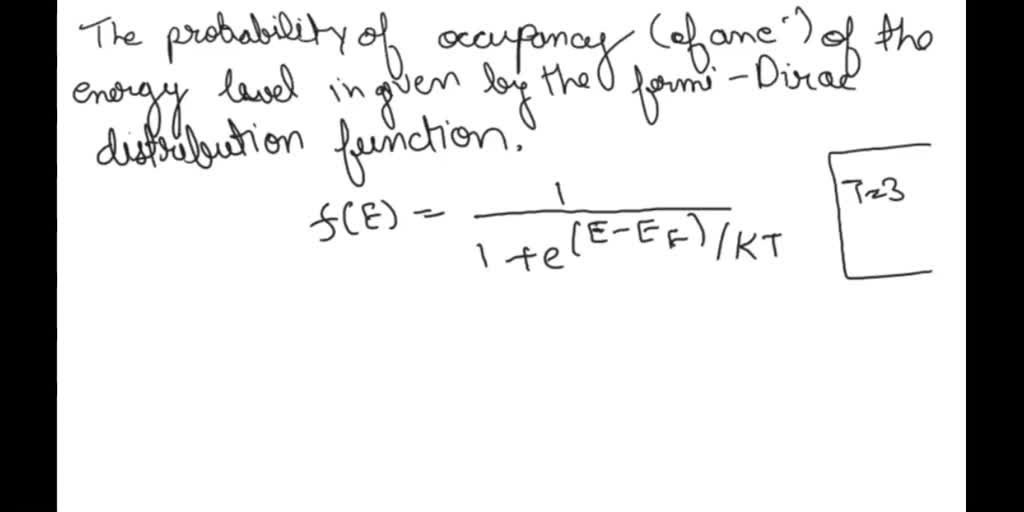 The probability of occupancy (of an e⁻) of the
energy level in given by the fermi - Dirac
distribution function.
f(E) = 1 / 1 + e^(E - E_F) / KT
T=3